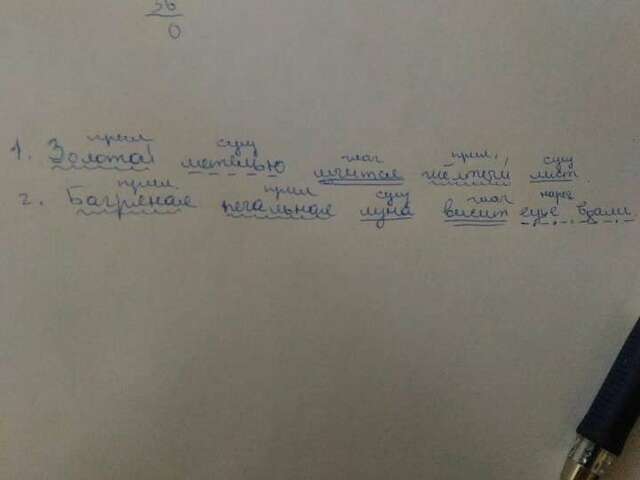 36
0
прил. сущ глаг прил. сущ
1. Золотой метелью мчится желтый лист.
прил прил сущ глаг нареч
2. Багряная печальная луна висит еще вдали